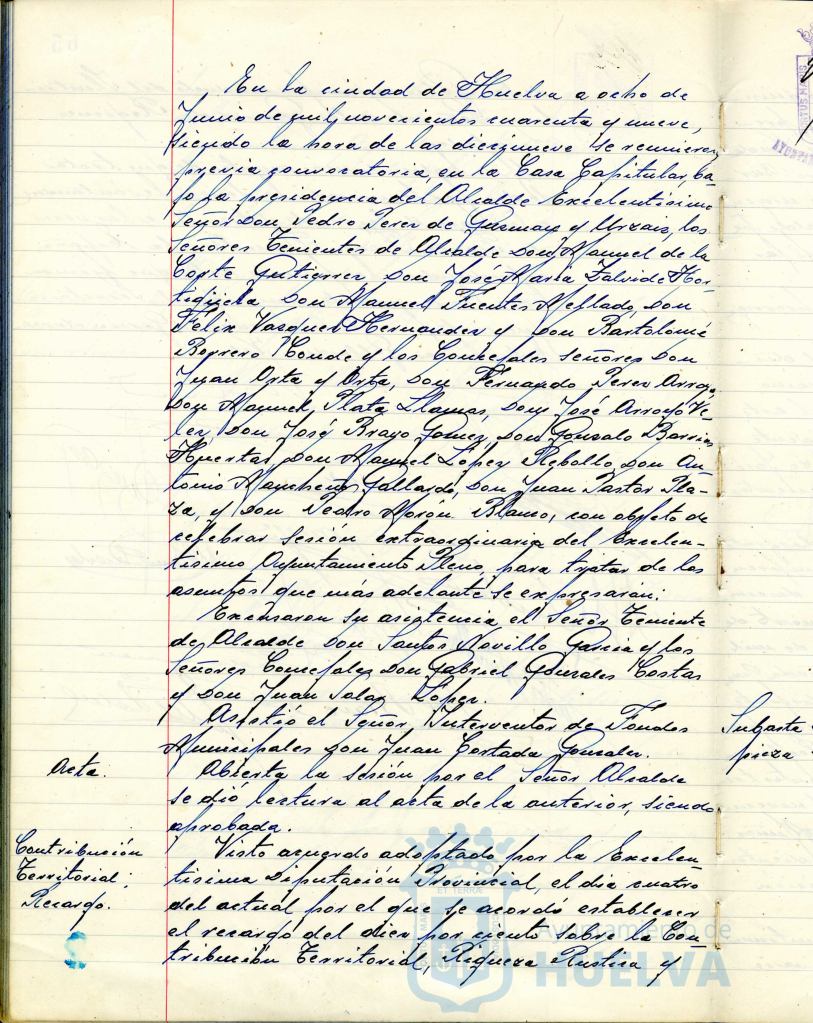 En la ciudad de Huelva a ocho de
Junio de mil novecientos cuarenta y nueve,
siendo la hora de las diecinueve se reunieron
previa convocatoria, en la Casa Capitular, ba-
jo la presidencia del Alcalde Excelentísimo
Señor Don Pedro Perez de Guzman y Urzaiz, los
Señores Tenientes de Alcalde Don Manuel de la
Corte Gutierrez, Don José Maria Zalvide Hor-
tigüela, Don Manuel Fuentes Mellado, Don
Felix Vazquez Hernandez y Don Bartolomé
Borrero Conde y los Concejales Señores Don
Juan Orta y Orta, Don Fernando Perez Arroyo,
Don Manuel Plata Llamas, Don José Arroyo Ve-
lez, Don José Brayo Gomez, Don Gonzalo Barrios
Huertas, Don Manuel López Rebollo, Don An-
tonio Mancheño Gallardo, Don Juan Pastor Pla-
za, y Don Pedro Morón Blanco, con objeto de
celebrar sesión extraordinaria del Excelen-
tísimo Ayuntamiento Pleno, para tratar de los
asuntos que más adelante se expresarán:
Excusaron su asistencia el Señor Teniente
de Alcalde Don Santos Novillo Garcia y los
Señores Concejales Don Gabriel Gonzales Costas
y Don Juan Salas López.
Asistió el Señor Interventor de Fondos
Municipales Don Juan Cortada Gonzalez.
Subasta
pieza
Acta.
Abierta la sesión por el Señor Alcalde
se dió lectura al acta de la anterior, siendo
aprobada.
Contribución
Territorial;
Recargo.
Visto acuerdo adoptado por la Excelen-
tísima Diputación Provincial, el dia cuatro
del actual por el que se acordó establecer
el recargo del diez por ciento sobre la Con
tribución Territorial, Riqueza Rustica y
Ayuntamiento de
HUELVA